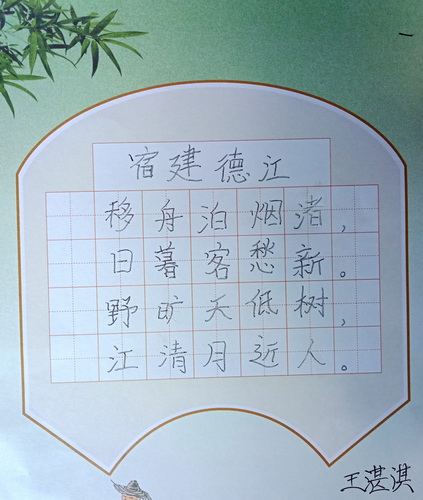 一
宿建德江
移舟泊烟渚，
日暮客愁新。
野旷天低树，
江清月近人。
王湛淇